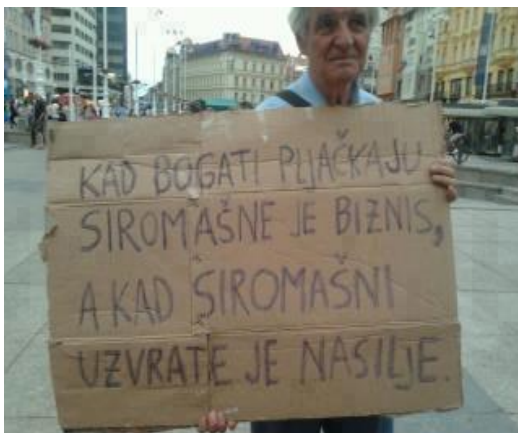 KAD BOGATI PLJAČKAJU
SIROMAŠNE JE BIZNIS,
A KAD SIROMAŠNI
UZVRATE JE NASILJE.